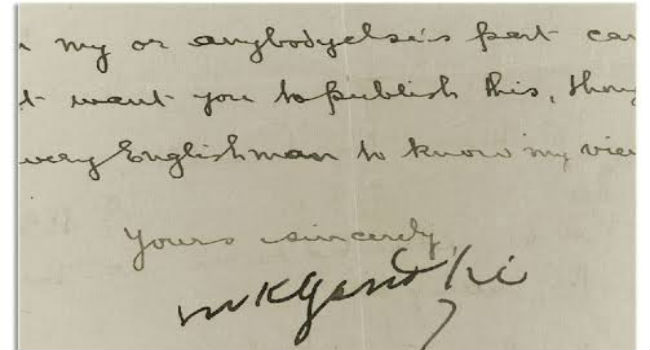 my or anybodyelse's part
want you to publish this,
Englishman to know my
Yours sincerely,
MKGandhi